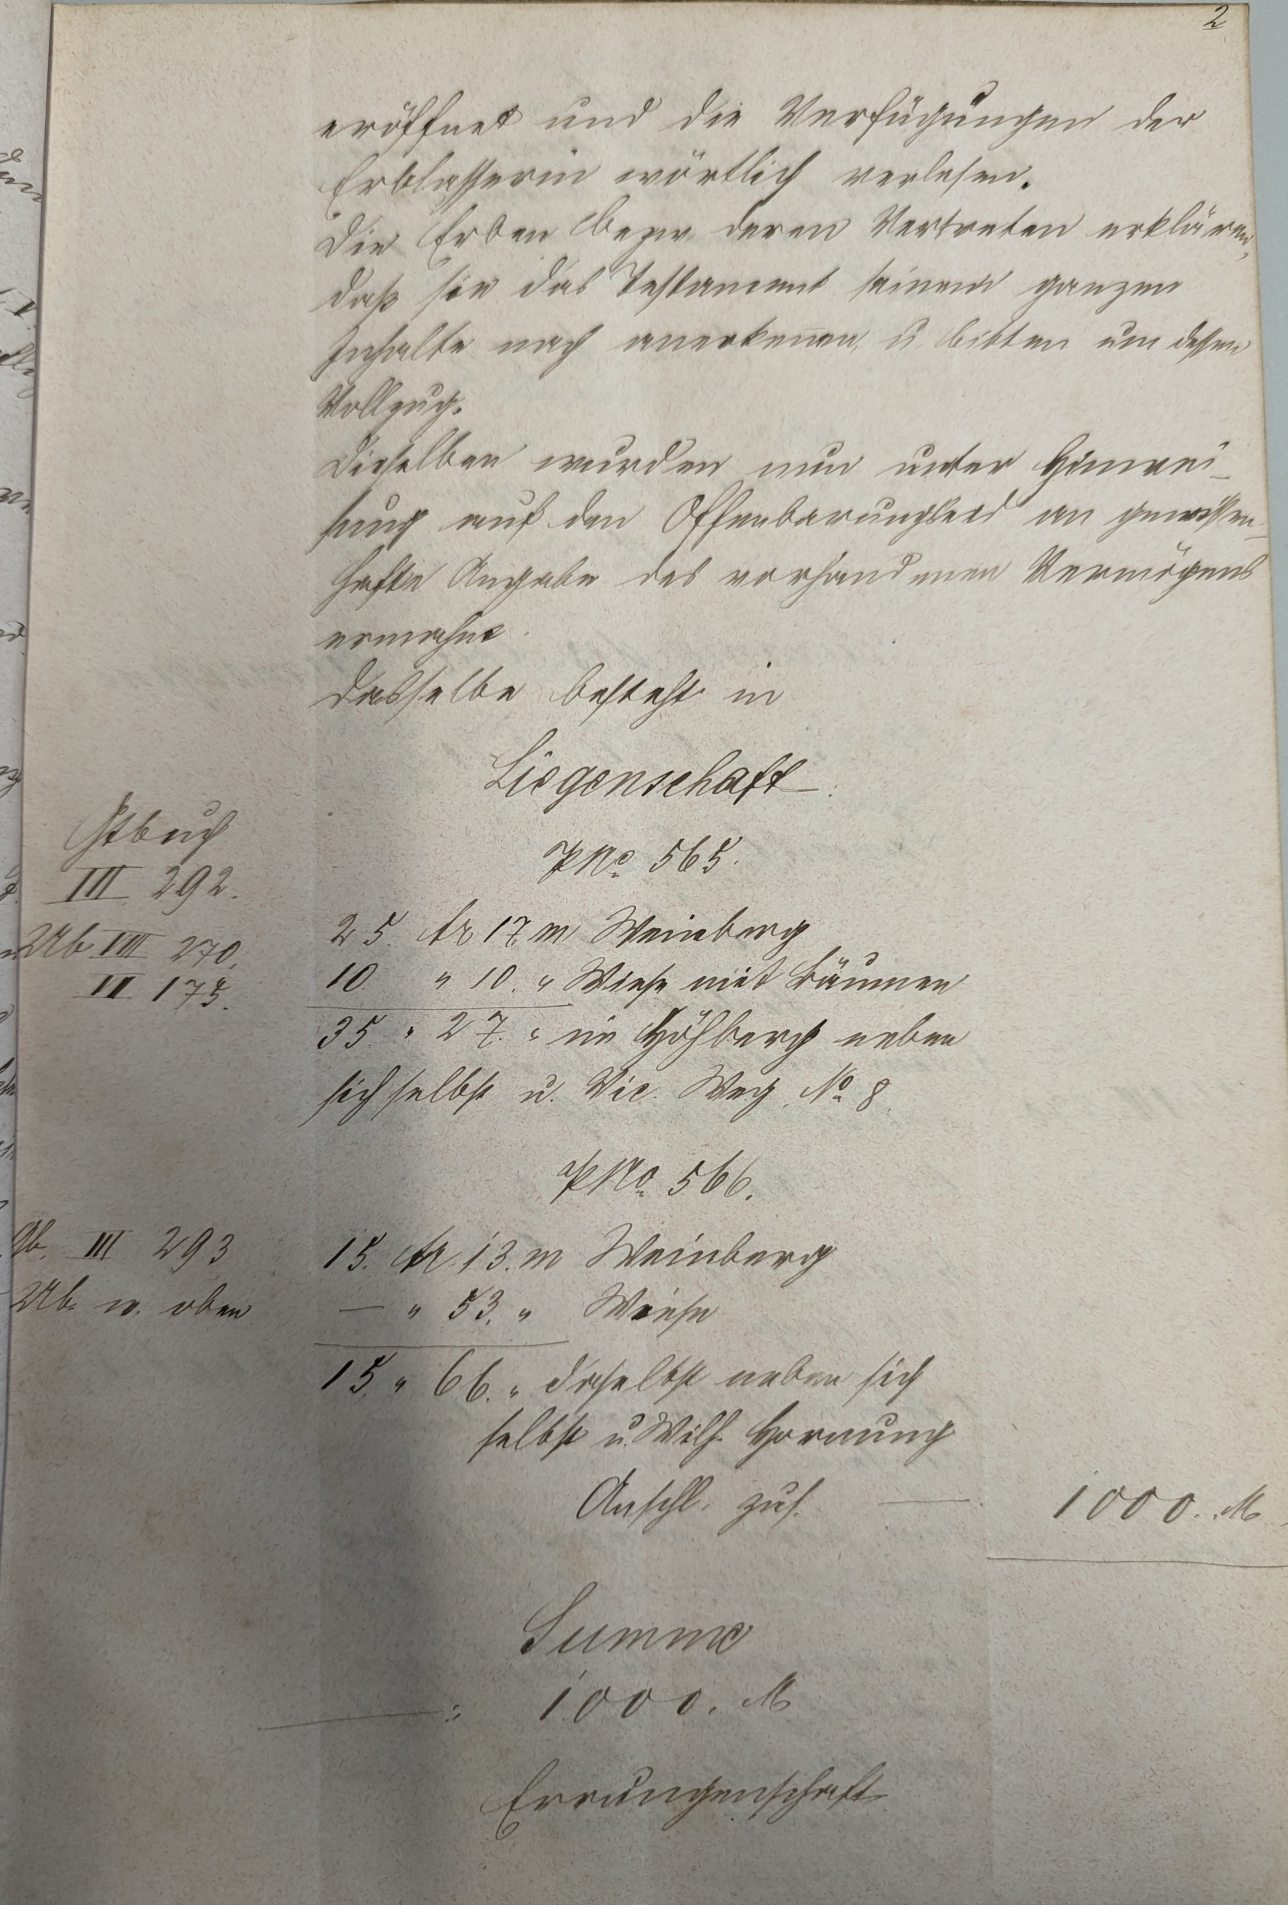 2
eröffnet und die Verfügungen der
Erblasserin wörtlich verlesen.
Die Erben bezw. deren Vertreten erklären,
daß sie das Testament seinem ganzen
Inhalte nach anerkennen u bitten um dessen
Vollzug.
Dieselben wurden nun unter Hinwei-
sung auf den Offenbarungseid an gewissen-
hafte Angabe des vorhandenen Vermögens
ermahnt.
Dasselbe besteht in
Liegenschaft.
PNo. 565.
Gtbuch
III 292.
Ub III 270.
II 175.
25. Ar 17 m Weinberg
10 " 10. " Wiese mit Bäumen
35. " 27. " im Höhberg neben
sich selbst u. Vic. Weg No. 8.
PNo. 566.
Gb. III 293
Ub. w. oben
15. Ar. 13. m Weinberg
— " 53. " Wiese
15. " 66. " daselbst neben sich
selbst u. Wilh. Hornung
Anschl. zus. — 1000. M
Summe
—: 1000. M
Errungenschaft